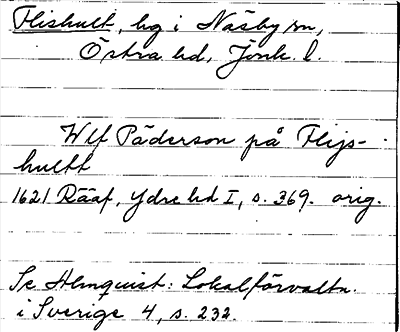 Flishult, hg i Näsby sn,
Östra hd, Jönk. l.
Wlf Päderson på Flijs-
hultt
1621 Rääf, Ydre hd I, s. 369. orig.
Se Almquist: Lokalförvaltn.
i Sverige 4, s. 232.